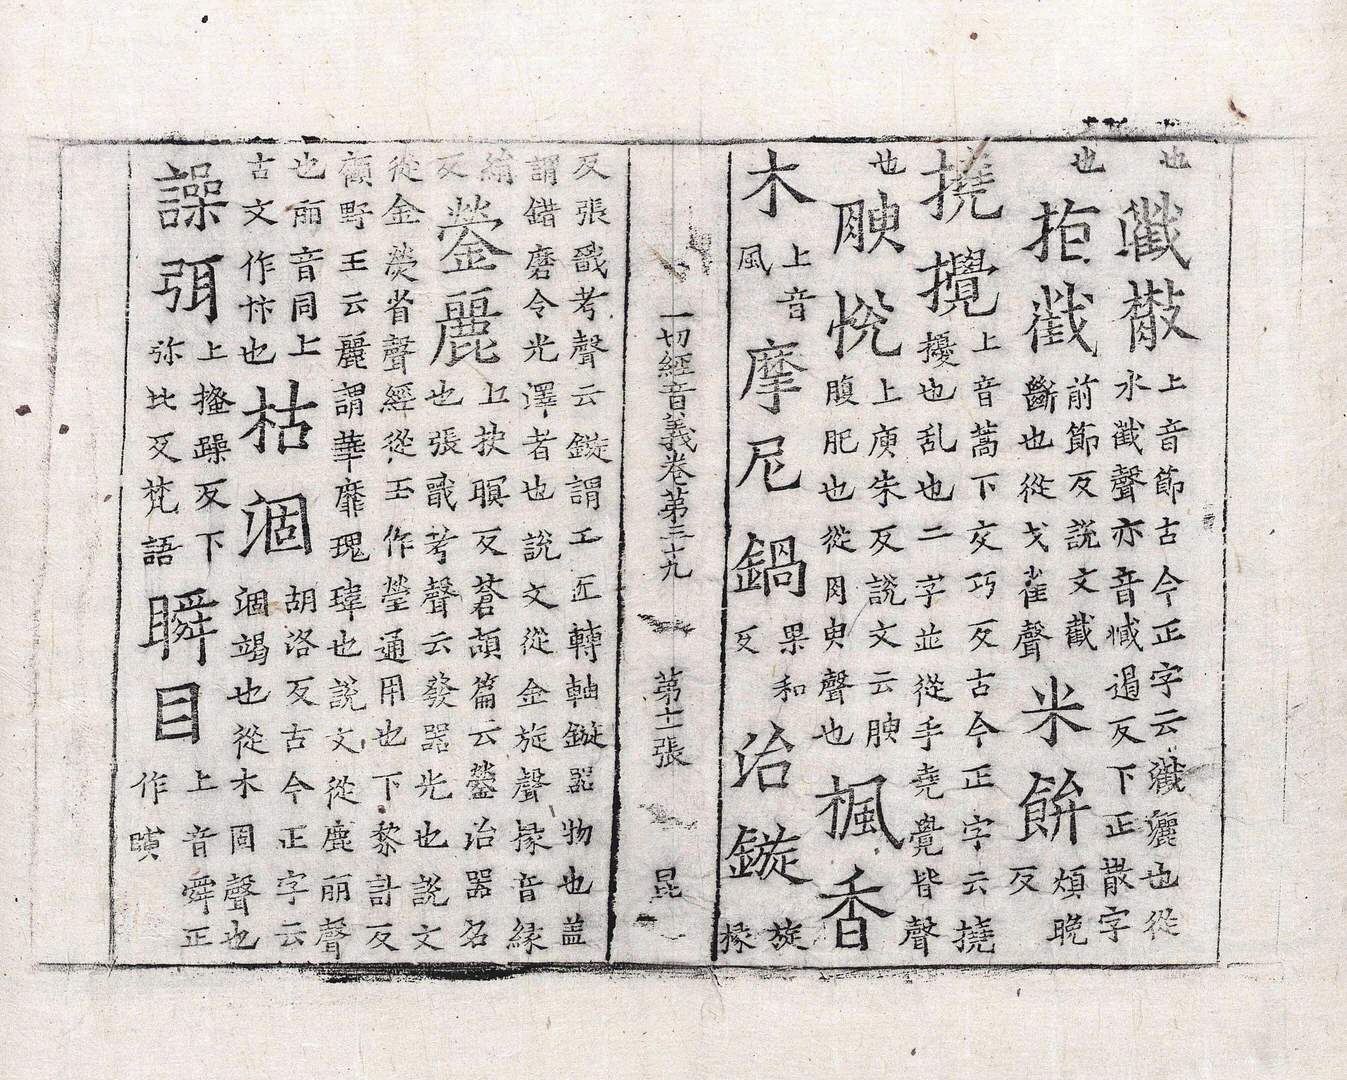 也
㪚
上音節古今正字云灑也從
水截聲亦音臧過反下正散字
也
拒截
前節反說文截
斷也從戈雀聲
米餅
煩晚
反
撓攪
上音蒿下交巧反古今正字云撓
擾也乱也二字並從手堯覺皆聲
也
腴悅
上庾朱反說文云腴
腹肥也從肉臾聲也
楓香
木
上音
風
摩尼鍋
果和
反
治鏇
旋
掾
一切經音義卷第三十九 第十一張 昆
反張戩考聲云鏇謂工匠轉軸鏇器物也盖
謂錯磨令光澤者也說文從金旋聲掾音緣
絹
反
鎣麗
上抰暝反蒼頡篇云鎣治器名
也張戩考聲云發器光也說文
從金熒省聲經從玉作瑩通用也下黎計反
顧野王云麗謂華靡瑰瑋也說文從鹿丽聲
也丽音同上
古文作也
枯涸
胡洛反古今正字云
涸竭也從木固聲也
譟弭
上搔躁反下
弥比反梵語
瞬目
上音舜正
作瞚